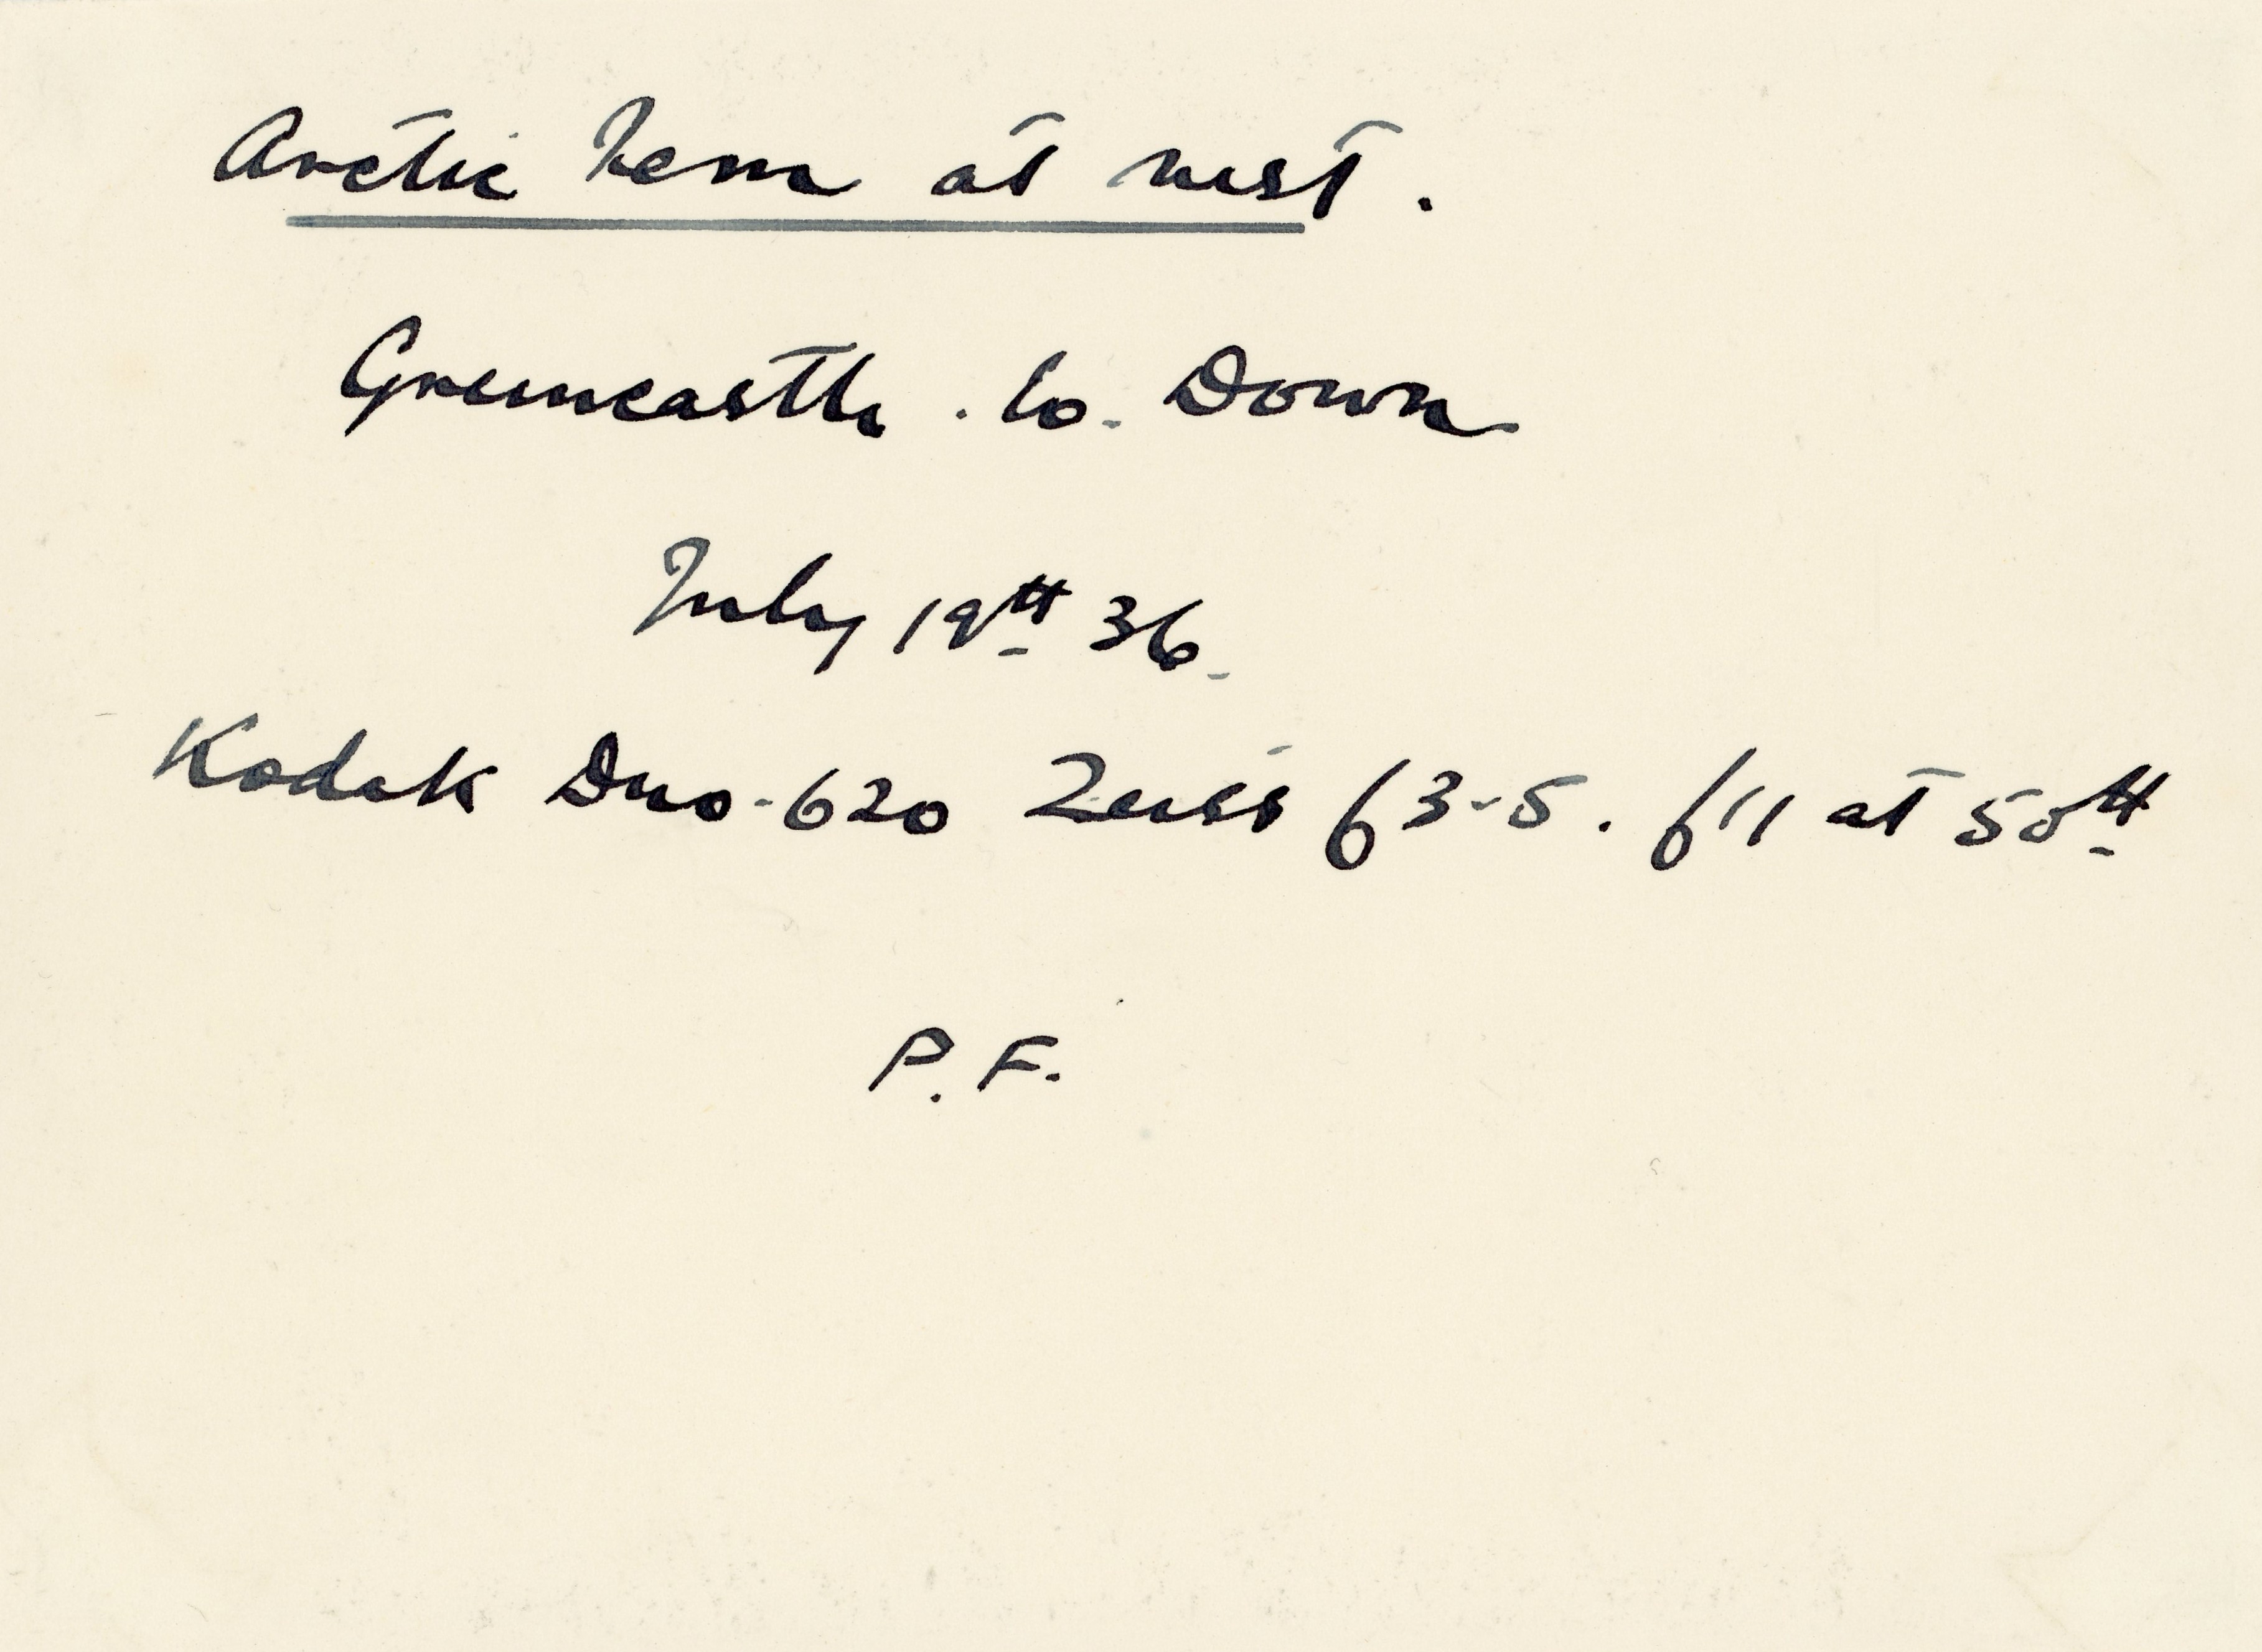 Arctic Tern at nest.
Greencastle. Co. Down
July 19th 36.
Kodak Duo-620 Zeiss f3.5. f11 at 50th
P.F.